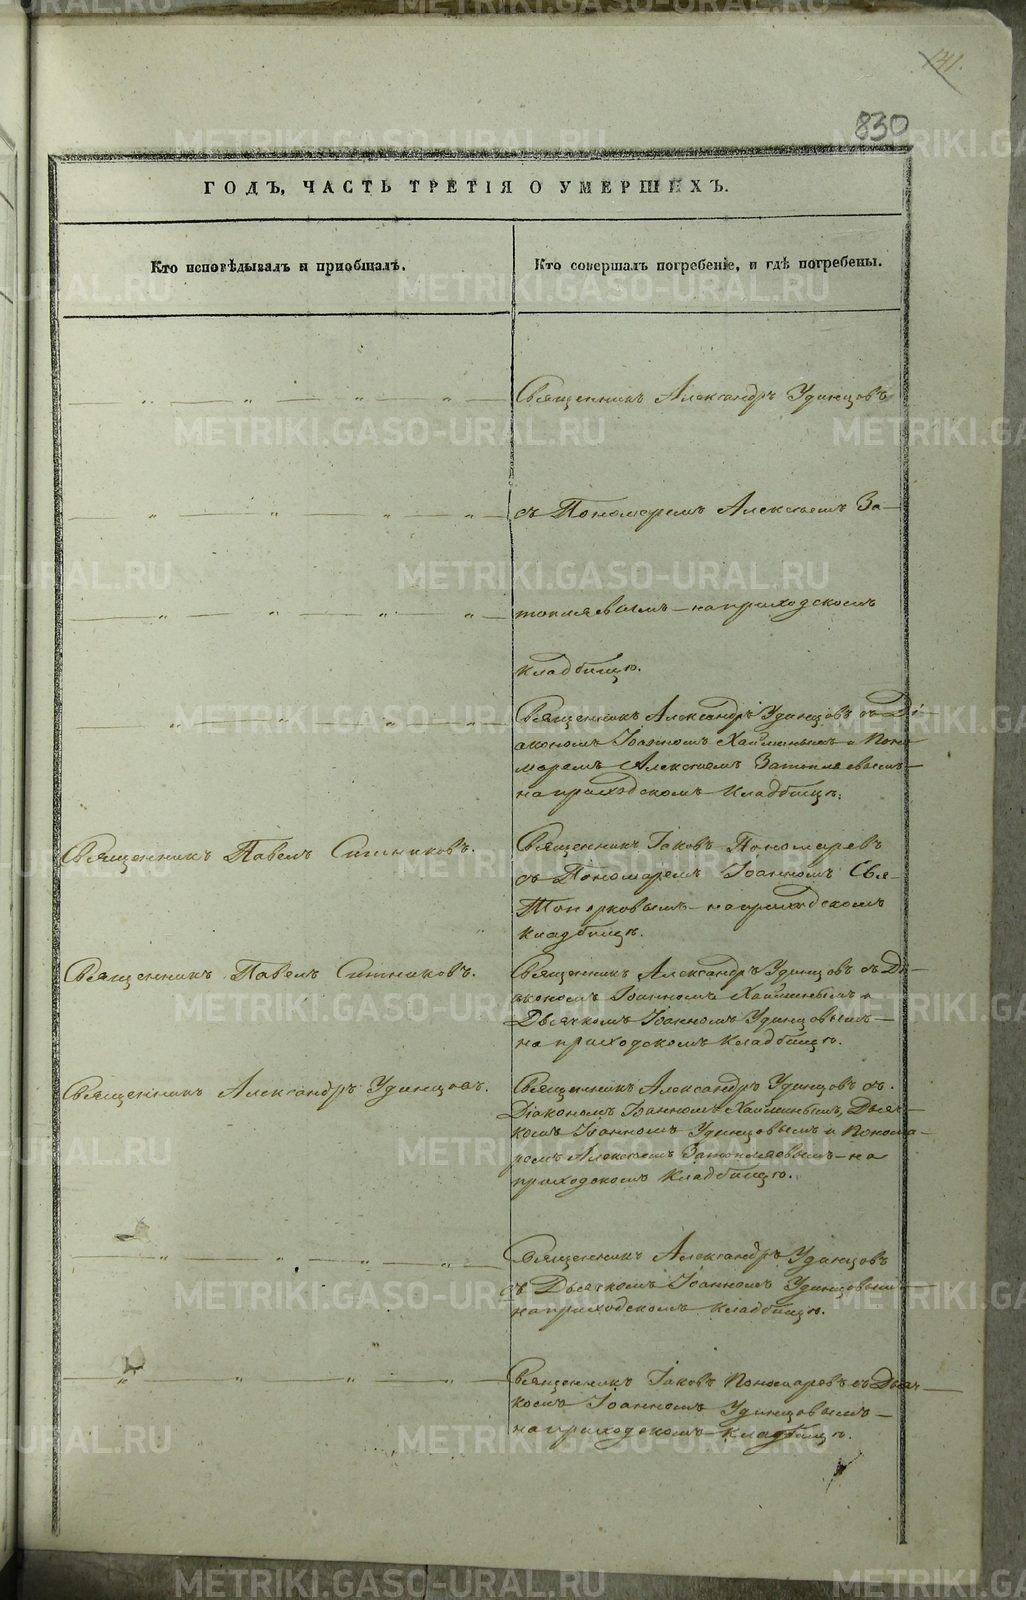 131.
830
ГОДЪ, ЧАСТЬ ТРЕТІЯ О УМЕРШИХЪ.
Кто исповѣдывалъ и приобщалъ.
Кто совершалъ погребеніе, и гдѣ погребены.
Священникъ Александръ Удинцовъ
съ Пономаремъ Алексѣемъ За-
топляевымъ – на приходскомъ
кладбищѣ.
Священникъ Александръ Удинцовъ съ Ді-
акономъ Іоанномъ Хайминымъ и Поно-
маремъ Алексѣемъ Затопляевымъ –
на приходскомъ кладбищѣ.
Священникъ Павелъ Ситниковъ.
Священникъ Іаковъ Пономаревъ
съ Пономаремъ Іоанномъ Свя-
Топорковымъ – на приходскомъ
кладбищѣ.
Священникъ Павелъ Ситниковъ.
Священникъ Александръ Удинцовъ съ Ді-
акономъ Іоанномъ Хайминымъ и
Дьячкомъ Іоанномъ Удинцовымъ –
на приходскомъ кладбищѣ.
Священникъ Александръ Удинцовъ.
Священникъ Александръ Удинцовъ съ
Діакономъ Іоанномъ Хайминымъ, Дьяч-
комъ Іоанномъ Удинцовымъ и Понома-
ремъ Алексѣемъ Затопляевымъ – на
приходскомъ кладбищѣ.
Священникъ Александръ Удинцовъ
съ Дьячкомъ Іоанномъ Удинцовымъ –
на приходскомъ кладбищѣ.
Священникъ Іаковъ Пономаревъ съ Дьяч-
комъ Іоанномъ Удинцовымъ –
на приходскомъ кладбищѣ.
METRIKI.GASO-URAL.RU